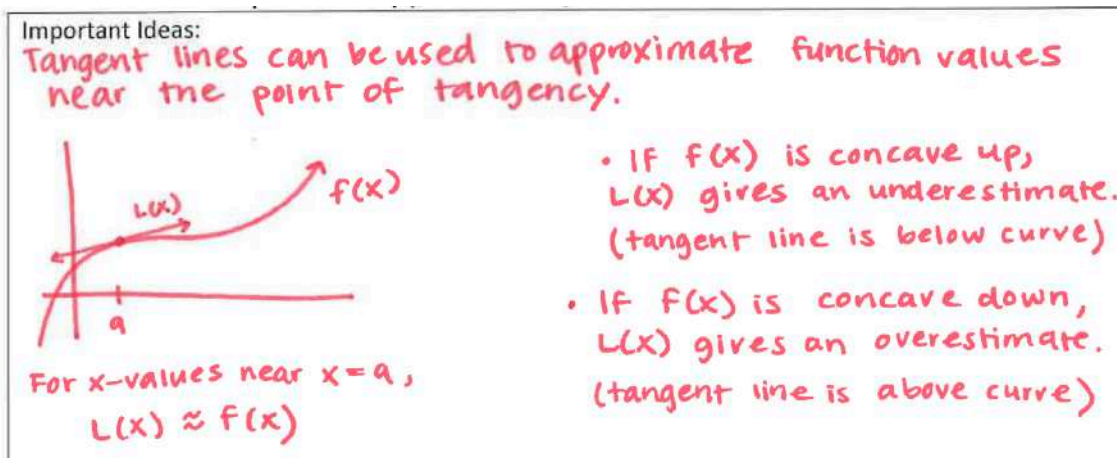 Important Ideas:
Tangent lines can be used to approximate function values
near the point of tangency.
L(x)
f(x)
a
For x-values near x=a,
L(x) ≈ f(x)
• If f(x) is concave up,
L(x) gives an underestimate.
(tangent line is below curve)
• If f(x) is concave down,
L(x) gives an overestimate.
(tangent line is above curve)